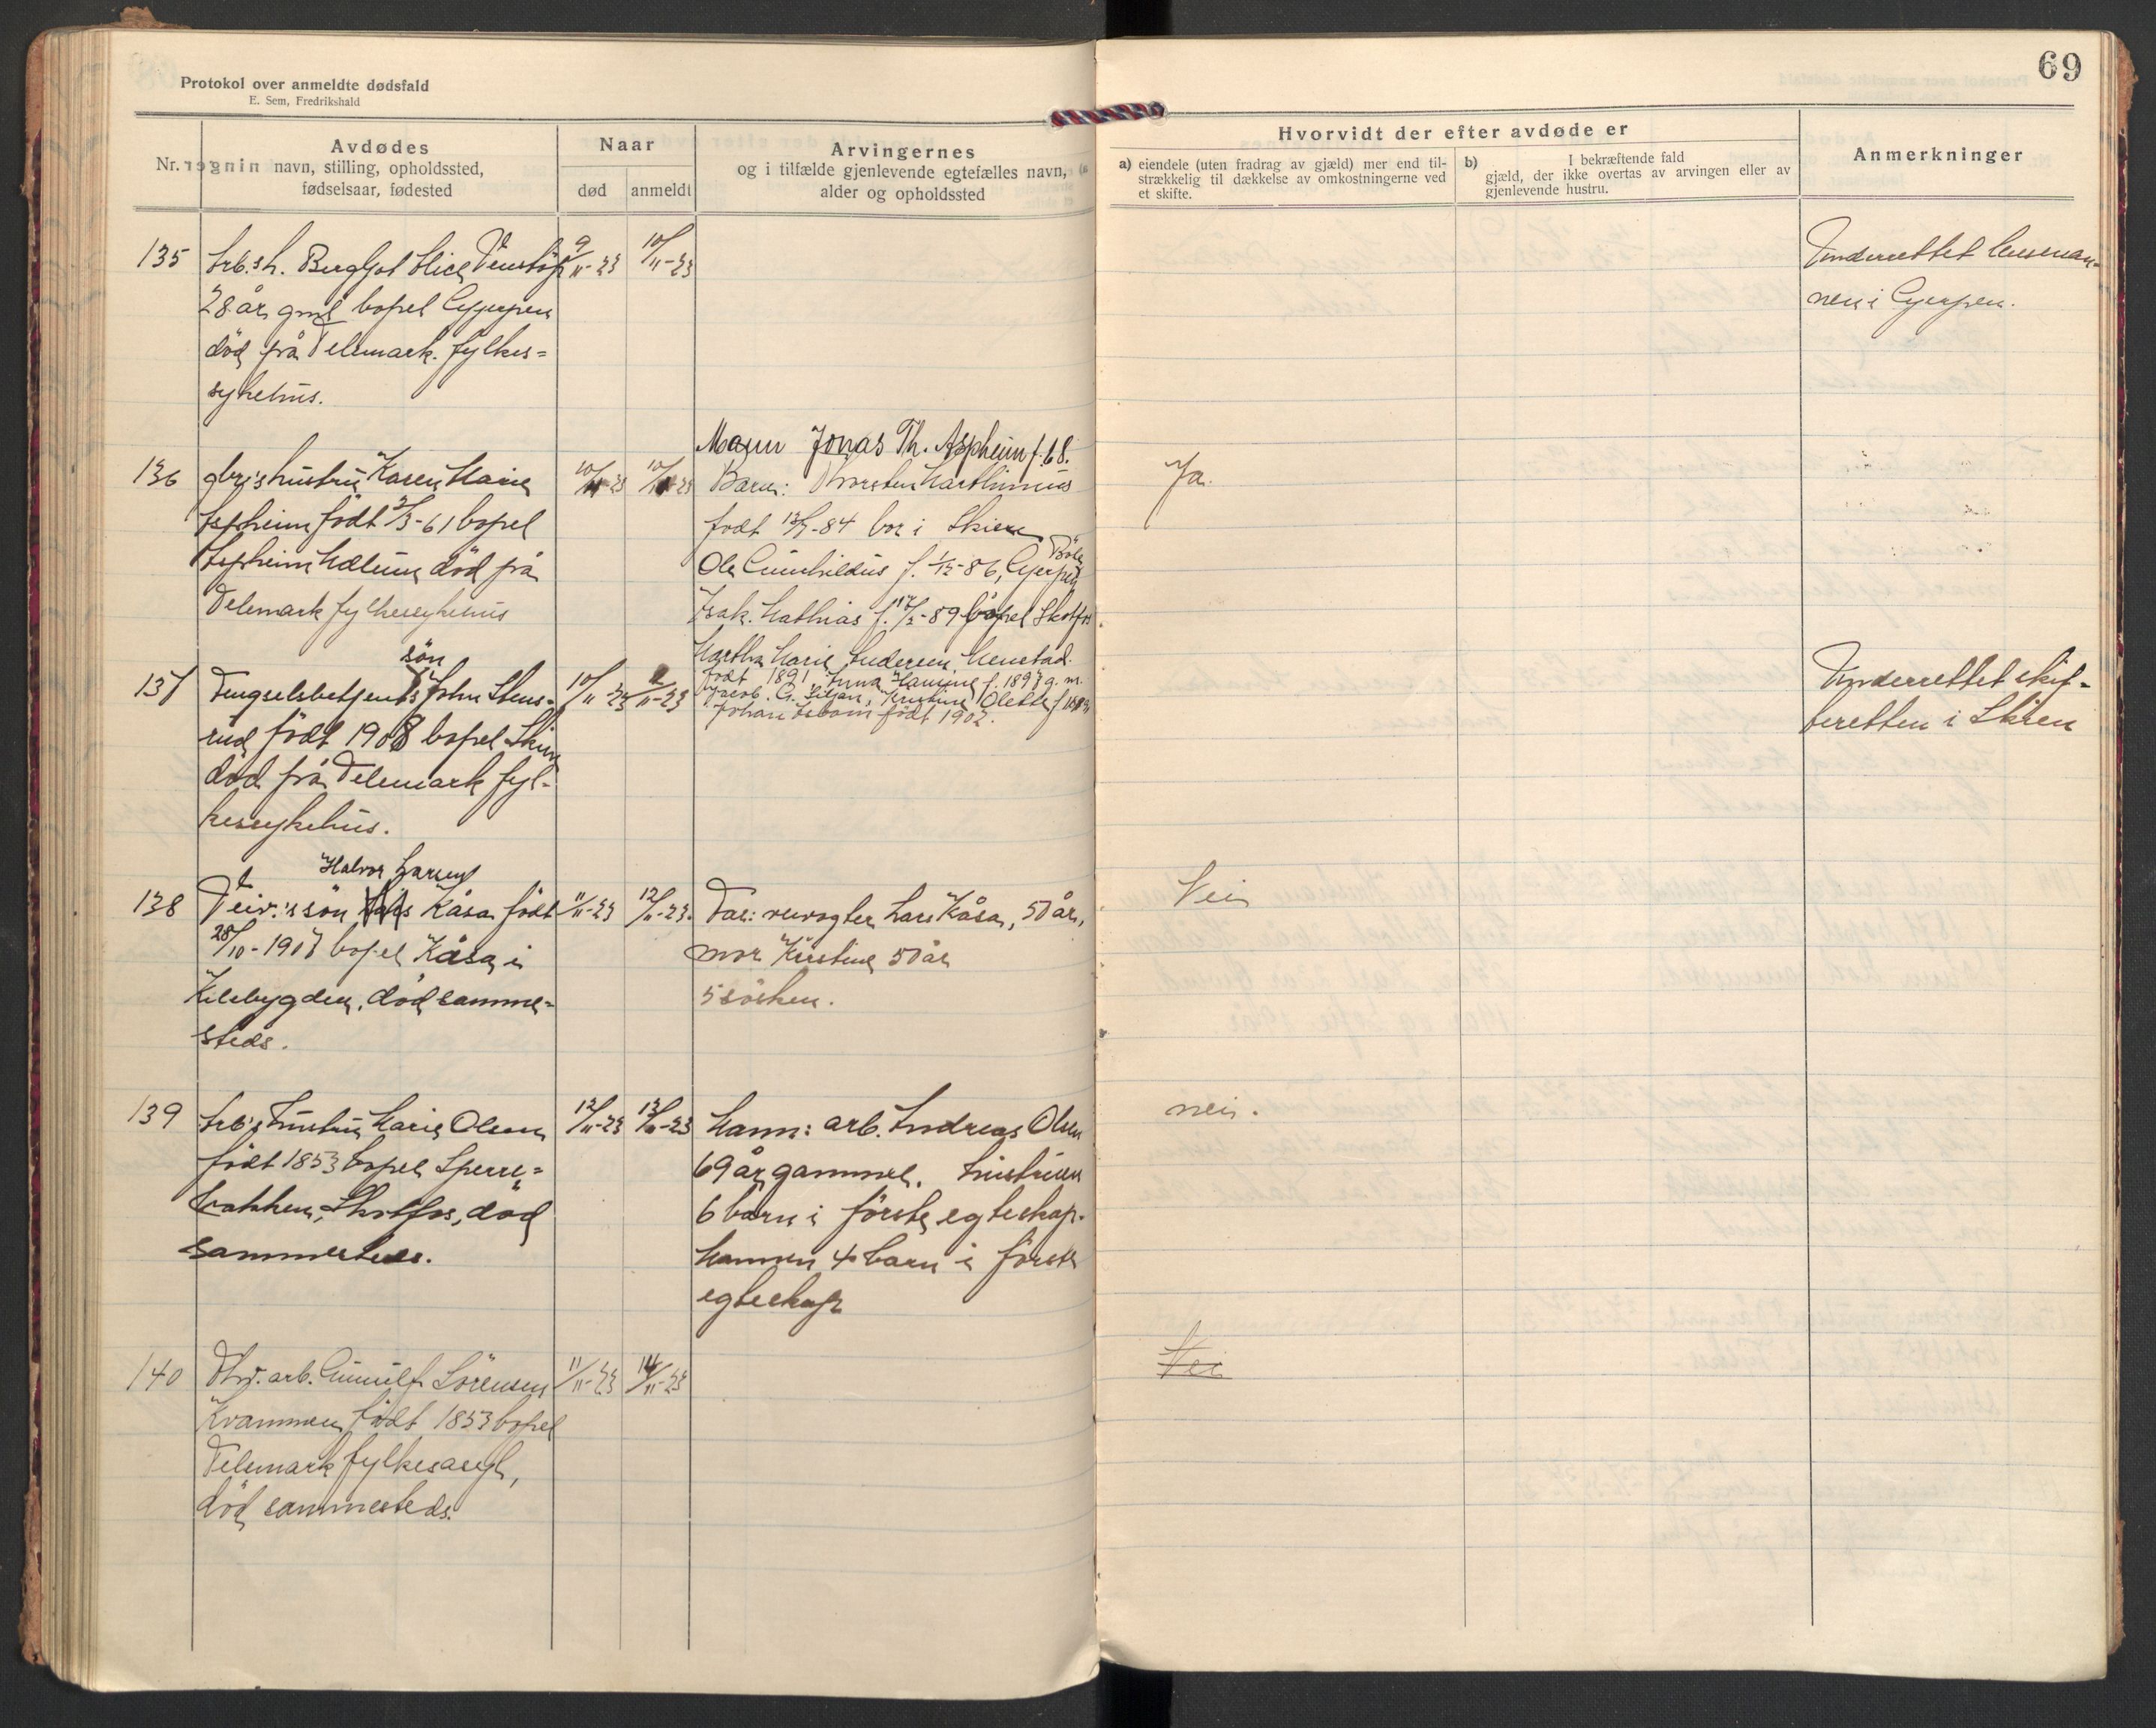 Protokol over anmeldte dødsfald
E. Sem, Fredrikshald
69
Nr.
Avdødes
navn, stilling, opholdssted,
fødselsaar, fødested
Naar
død
anmeldt
Arvingernes
og i tilfælde gjenlevende egtefælles navn,
alder og opholdssted
Hvorvidt der efter avdøde er
a) eiendele (uten fradrag av gjæld) mer end til-
strækkelig til dækkelse av omkostningerne ved
et skifte.
b) I bekræftende fald
gjæld, der ikke overtas av arvingen eller av
gjenlevende hustru.
Anmerkninger
135 Arb.s h. Bergljot Alice Venstöp
28 år gml bopel Gjerpen
död på Telemark. fylkes=
sykehus.
9/11-23
10/11-23
Underrettet lensman-
nen i Gjerpen.
136 gbr.s hustru Karen Marie
Aspheim födt 2/3-61 bopel
Aspheim Mælum död på
Telemark fylkessykehus
10/11-23
10/11-23
Mann Jonas Th. Aspheim f. 68.
Barn: Thorsten Marthinius
födt 12/7-84 bor i Skien
Ole Gunhildus f. 1/12-86, Gjerpen
Böle
Isak Mathias f. 17/2-89 bopel Skotfos
Martha Marie Andersen Menstad.
födt 1891 Anna Hanine f. 1897 g. m.
Jacob G. Siljan, Kristine Olette f
Johan Asbom födt 1902.
Ja.
137 Fengselsbetjents John Stens-
sön
rud födt 1908 bopel Skien
död på Telemark fyl-
kessykehus.
10/11-23
/11-23
Underrettet skif-
teretten i Skien
138 Halvor Larsen
sön Kåsa födt
28/10-1907 bopel Kåsa i
Kilebygden, död samme-
steds.
11/11-23
12/11-23.
Far: Lars Kåsa, 50 år,
mor Kirstine 50 år
5 sösken.
Nei
139 Arb's hustru Marie Olsen
födt 1853 bopel Sperre-
bakken, Skotfos, död
sammesteds.
12/11-23
13/11-23
Mann: arb. Andreas Olsen
69 år gammel. hustruen
6 barn i förste egteskap.
Mannen 4 barn i förste
egteskap
nei.
140 Fhv. arb. Gunulf Sörensen
Kvammen födt 1853 bopel
Telemark fylkesasyl,
död sammesteds.
11/11-23
14/11-23
Nei